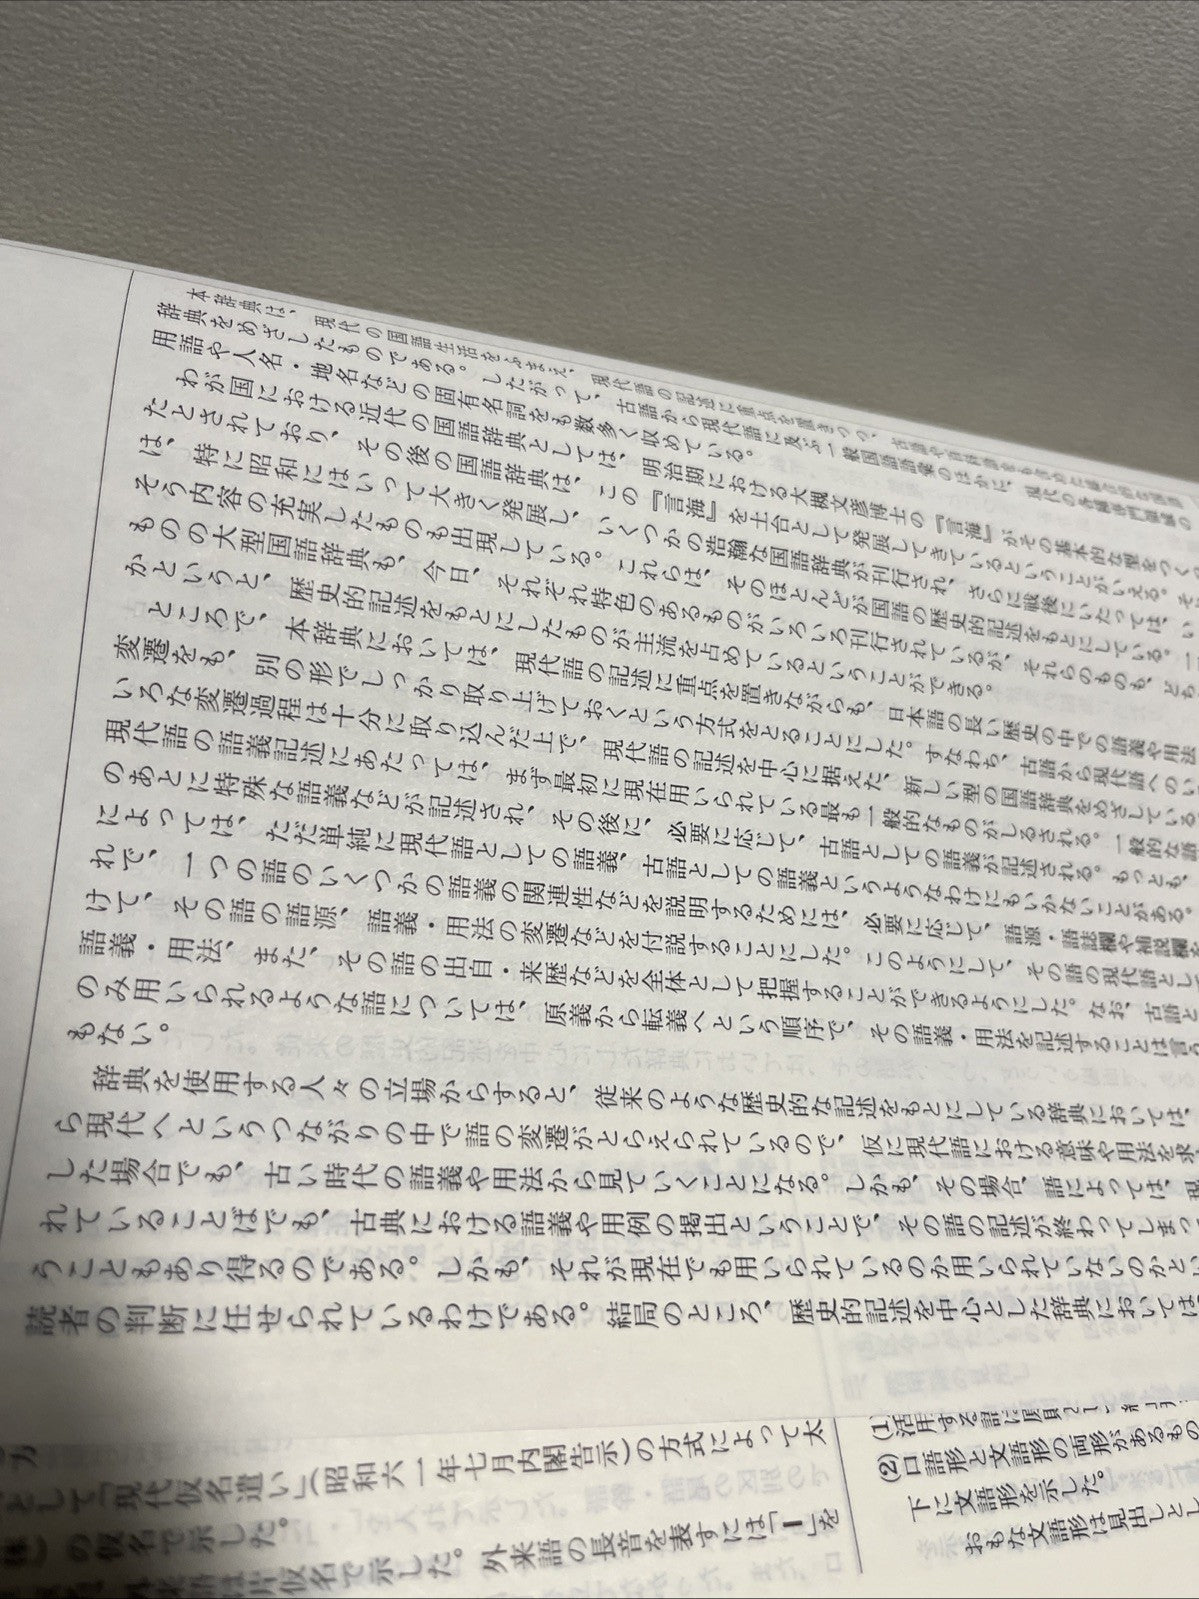 本辞典は、現代の国語生活をふまえ、現代語の記述に重点を置きつつ、古語や百科語をも含めた総合的な国語
辞典をめざしたものである。したがって、古語から現代語に及ぶ一般国語語彙のほかに、現代の各種専門領域の
用語や人名・地名などの固有名詞をも数多く収めている。
わが国における近代の国語辞典としては、明治期における大槻文彦博士の『言海』がその基本的な型をつくっ
たとされており、その後の国語辞典は、この『言海』を土台として発展してきているということがいえる。そ
は、特に昭和にはいって大きく発展し、いくつかの浩瀚な国語辞典が刊行され、さらに戦後にいたっては、い
そう内容の充実したものも出現している。これらは、そのほとんどが国語の歴史的記述をもとにしている。一
ものの大型国語辞典も、今日、それぞれ特色のあるものがいろいろ刊行されているが、それらのものも、どち
かというと、歴史的記述をもとにしたものが主流を占めているということができる。
ところで、本辞典においては、現代語の記述に重点を置きながらも、日本語の長い歴史の中での語義や用法
変遷をも、別の形でしっかり取り上げておくという方式をとることにした。すなわち、古語から現代語へのい
いろな変遷過程は十分に取り込んだ上で、現代語の記述を中心に据えた、新しい型の国語辞典をめざしている
現代語の語義記述にあたっては、まず最初に現在用いられている最も一般的なものがしるされる。一般的な語
のあとに特殊な語義などが記述され、その後に、必要に応じて、古語としての語義が記述される。もっとも、
によっては、ただ単純に現代語としての語義、古語としての語義というようなわけにもいかないことがある。
れで、一つの語のいくつかの語義の関連性などを説明するためには、必要に応じて、語源・語誌欄や補説欄を
けて、その語の語源、語義・用法の変遷などを付説することにした。このようにして、その語の現代語として
語義・用法、また、その語の出自・来歴などを全体として把握することができるようにした。なお、古語と
のみ用いられるような語については、原義から転義へという順序で、その語義・用法を記述することは言う
もない。
辞典を使用する人々の立場からすると、従来のような歴史的な記述をもとにしている辞典においては、
ら現代へというつながりの中で語の変遷がとらえられているので、仮に現代語における意味や用法を求
した場合でも、古い時代の語義や用法から見ていくことになる。しかも、その場合、語によっては、現
れていることばでも、古典における語義や用例の掲出ということで、その語の記述が終わってしまっ
うこともあり得るのである。しかも、それが現在でも用いられているのか用いられていないのかとい
読者の判断に任せられているわけである。結局のところ、歴史的記述を中心とした辞典においては
方
として「現代仮名遣い」(昭和六一年七月内閣告示)の方式によって太
の仮名で示した。
片仮名で示した。外来語の長音を表すには「ー」を
(1)活用する語に
(2)口語形と文語形の両形があるもの
下に文語形を示した。
おもな文語形は見出しとし